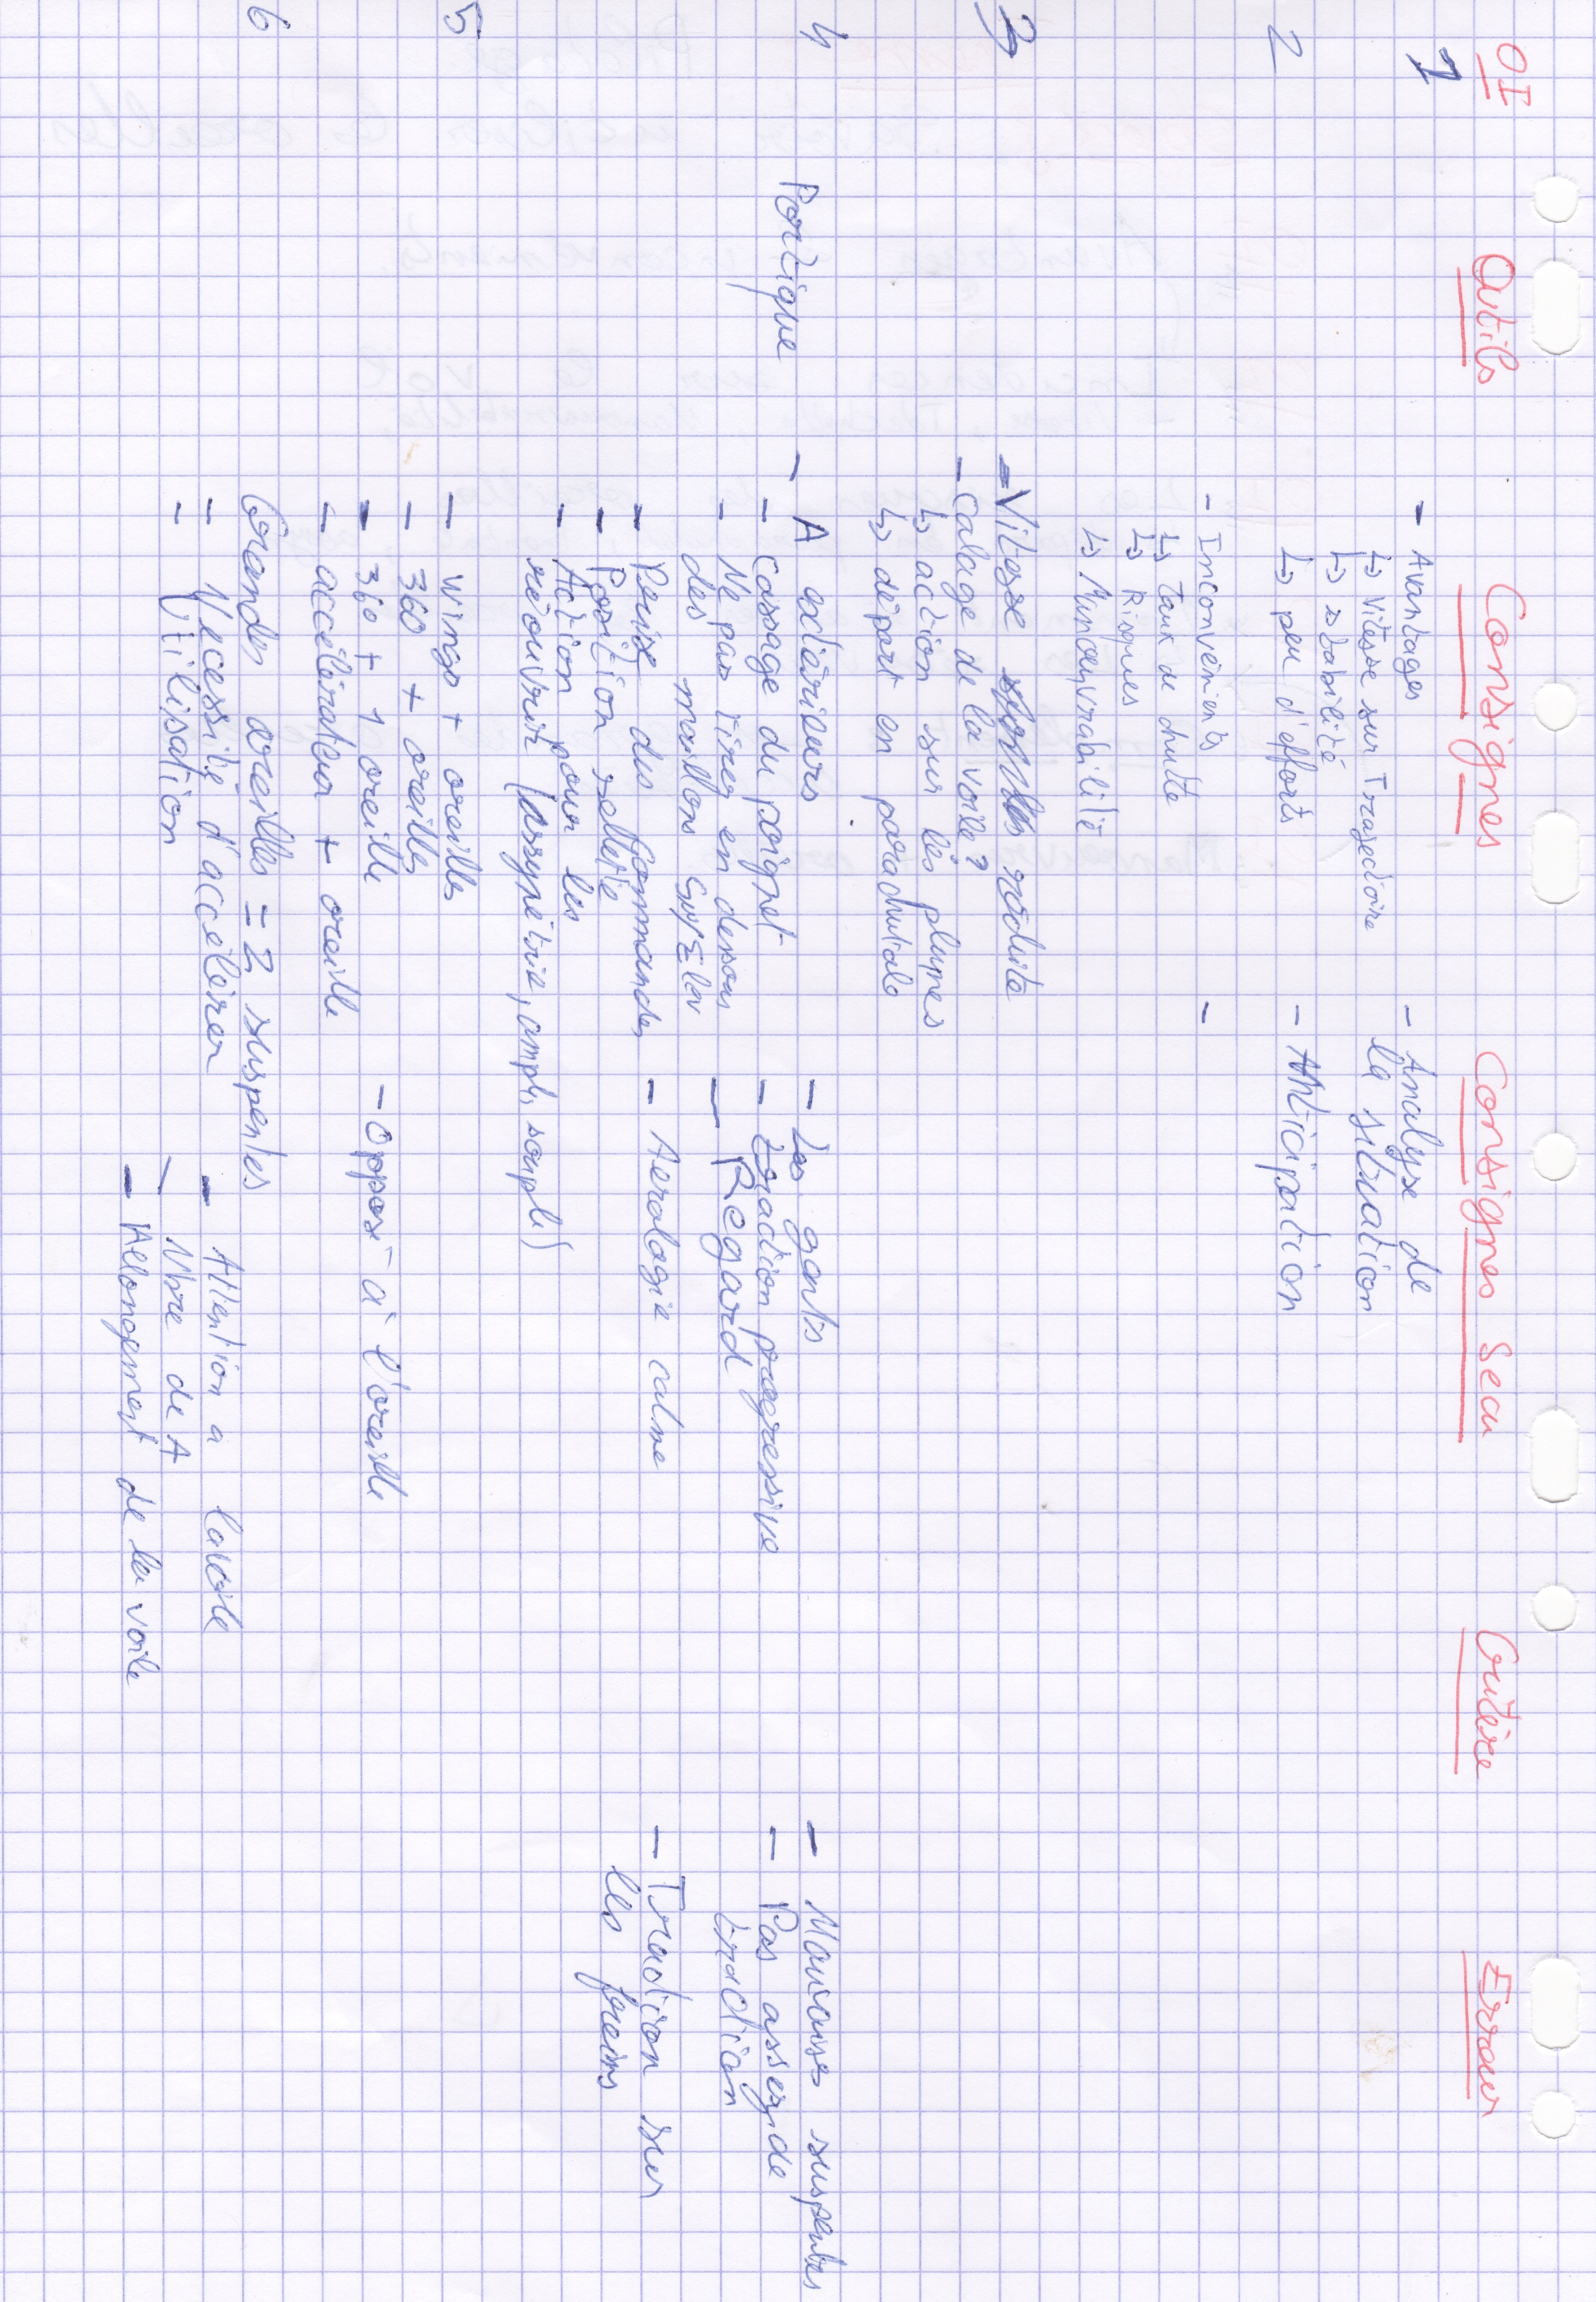 OI Outils Consignes Consignes Secu Critère Erreur
1
- Avantages
↳ Vitesse sur Trajectoire
↳ stabilité
↳ peu d'efforts
- Analyse de
la situation
- Anticipation
2
- Inconvénients
↳ Taux de chute
↳ Risques
↳ Manoeuvrabilité
-
3
- Vitesse réduite
- Calage de la voile?
↳ action sur les plumes
↳ départ en parachutale
4
Portique
- A extérieurs
- Cassage du poignet
- Ne pas tirer en dessous
des maillons
- Prise des commandes
- Position sellette
- Action pour les
réouvrir (assymétrie, ampli, souple)
- Les gants
- traction progressive
- Regard
- Aerologie calme
- Mauvaises suspentes
- Pas assez de
traction
- Traction sur
les freins
5
- wings + oreilles
- 360 + oreilles
- 360 + 1 oreille
- accélérateur + oreille
- Opposé à l'oreille
6
Grandes oreilles = 2 suspentes
= Necessité d'accélérer
= Utilisation
- Attention a la voile
- Nbre de A
- Allongement de la voile